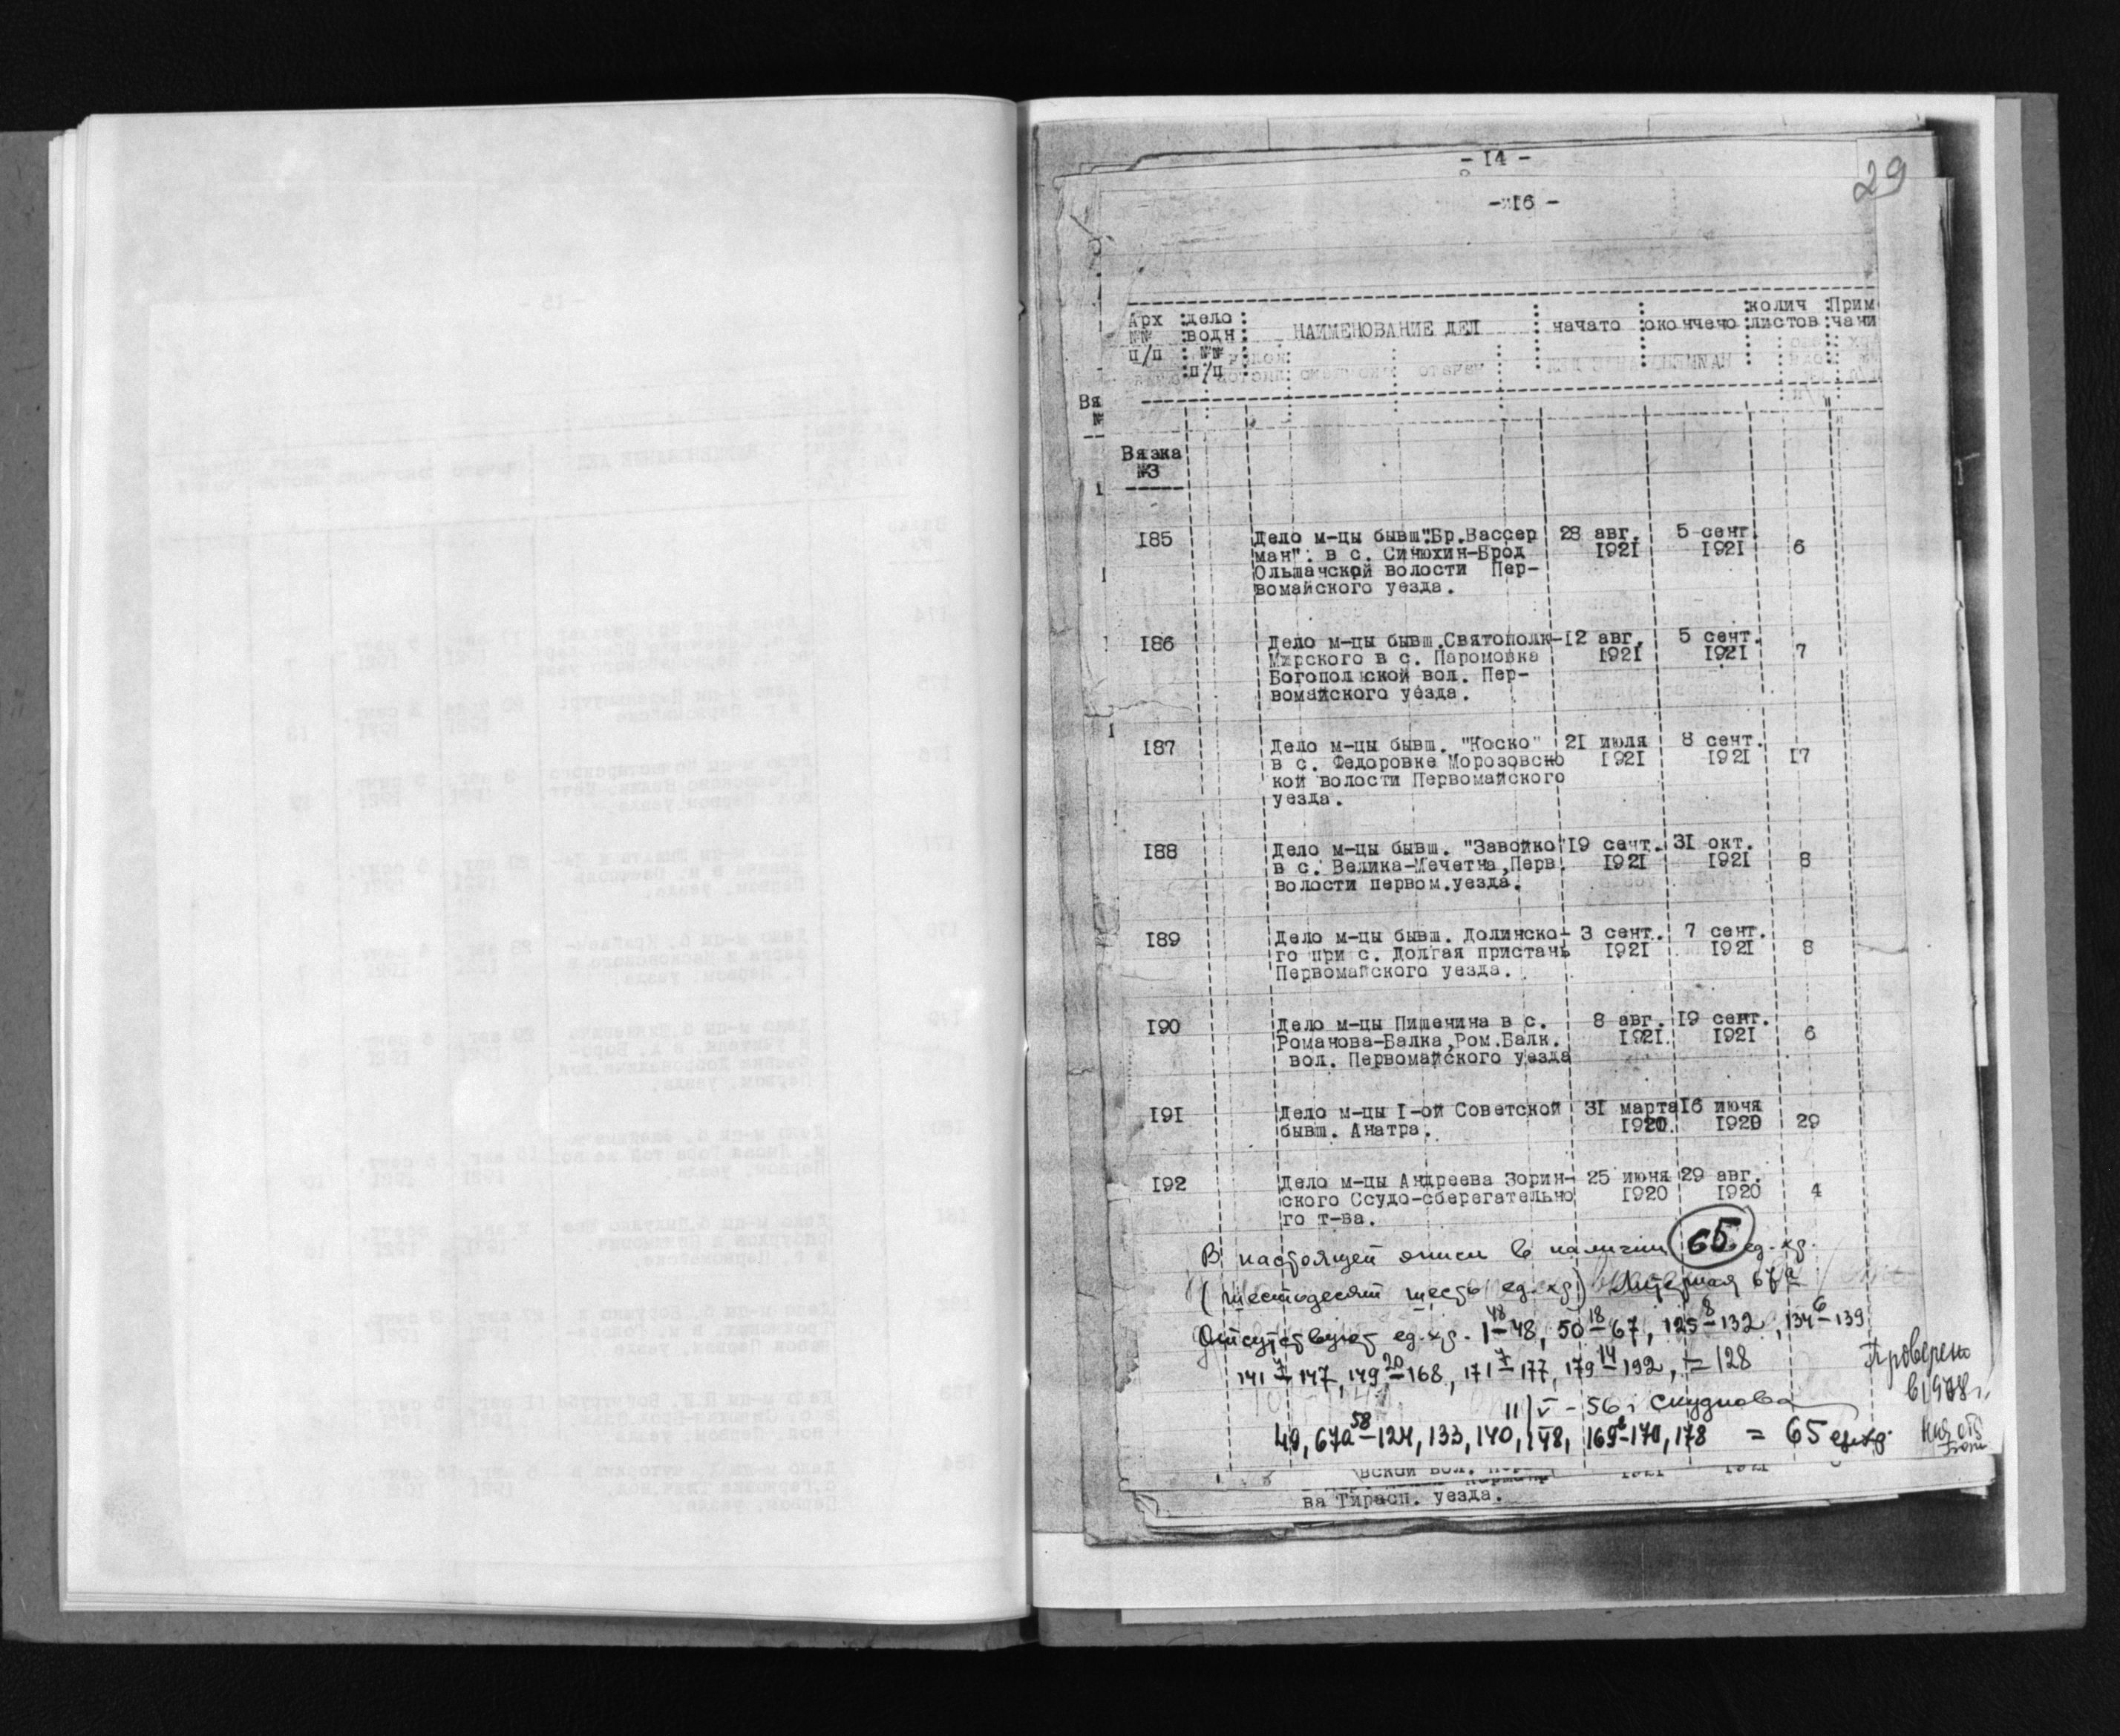 - 14 -
29
- 16 -
Арх :дело: НАИМЕНОВАНИЕ ДЕЛ : начато :окончено :колич :Прим
№№ :водн: листов :чани
п/п : №№ :
:п/п :
Вя
№
Вязка
№3
185 Дело м-цы бывш."Бр.Вассер 28 авг. 5 сент.
ман". в с. Синюхин-Брод 1921 1921 6
Ольшанской волости Пер-
вомайского уезда.
186 Дело м-цы бывш.Святополк- 12 авг. 5 сент.
Мирского в с. Паромовка 1921 1921 7
Богопольской вол. Пер-
вомайского уезда.
187 Дело м-цы бывш. "Коско" 21 июля 8 сент.
в с. Федоровке Морозовско 1921 1921 17
кой волости Первомайского
уезда.
188 Дело м-цы бывш. "Завойко" 19 сент. 31 окт.
в с. Велика-Мечетна,Перв. 1921 1921 8
волости первом.уезда.
189 Дело м-цы бывш. Долинско- 3 сент. 7 сент.
го при с. Долгая пристань 1921 1921 8
Первомайского уезда.
190 Дело м-цы Пишенина в с. 8 авг. 19 сент.
Романова-Балка,Ром.Балк. 1921. 1921 6
вол. Первомайского уезда
191 Дело м-цы I-ой Советской 31 марта 16 июня
бывш. Анатра. 1920. 1920 29
192 Дело м-цы Андреева Зорин- 25 июня 29 авг.
ского Ссудо-сберегательно 1920 1920 4
го т-ва.
В настоящей описи в наличии 65 ед. хр.
(шестьдесят шесть ед. хр.) Литерная 67а
Отсутствуют ед. хр. 1-48, 50-67, 125-132, 134-139
48 18 8 6
141-147, 149-168, 171-177, 179-192, = 128
7 20 7 14
11/V - 56 г Скуднова
49, 67а-124, 133, 140, 148, 169-170, 178 = 65 ед.хр.
58 2
Проверено
в 1978 г.
вской вол.
ва Тирасп. уезда.